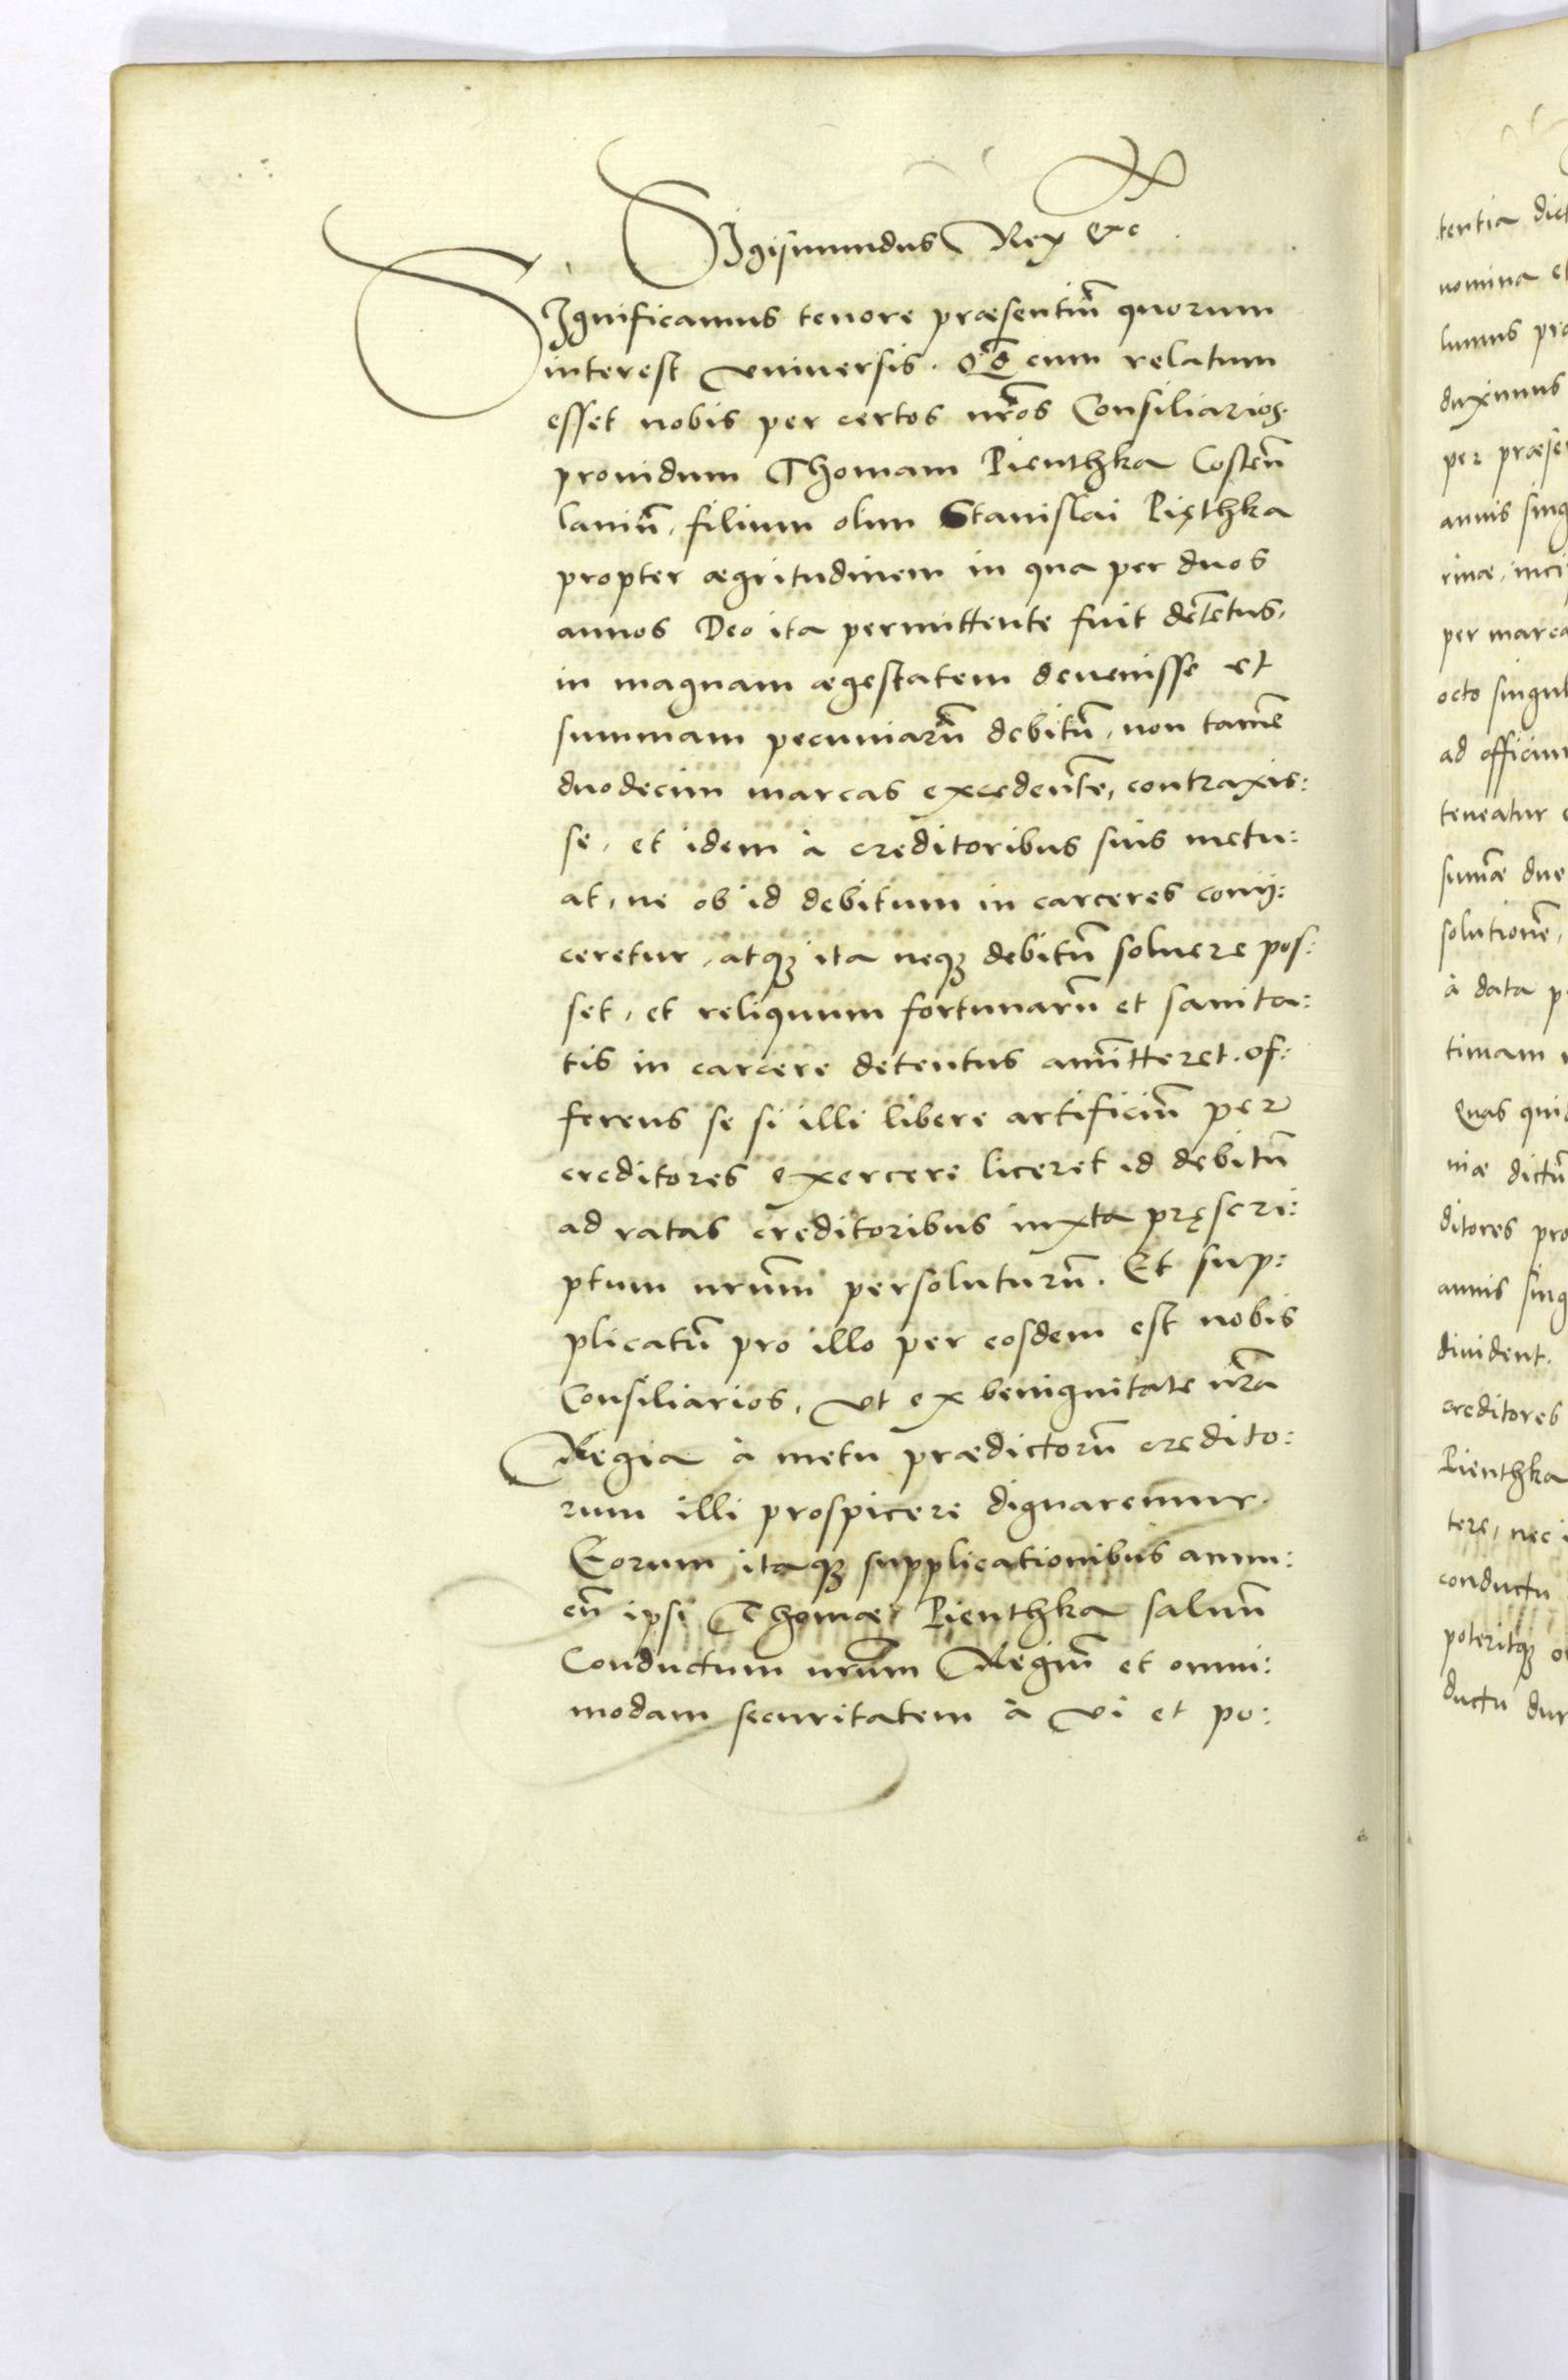 Sigismundus Rex &c.
Significamus tenore præsentiũ quorum
interest vniuersis. Qđ cum relatum
esset nobis per certos nr̃os Consiliarios.
prouidum Thomam Pienthka Costeñ
laniũ, filium olim Stanislai Pięthka
propter ægritudinem in qua per duos
annos Deo ita permittente fuit detẽtus,
in magnam ægestatem deuenisse et
summam pecuniarũ debitũ, non tamẽ
duodecim marcas excedentẽ, contraxis:
se, et idem à creditoribus suis metu:
at, ne ob id debitum in carceres conij:
ceretur, atqꝫ ita neqꝫ debitũ soluere pos:
set, et reliquum fortunarũ et sanita:
tis in carcere detentus amĩtteret. of:
ferens se si illi libere artificiũ per
creditores exercere liceret id debitũ
ad ratas creditoribus iuxta pręscri:
ptum nr̃um persoluturũ. Et sup:
plicatũ pro illo per eosdem est nobis
Consiliarios, vt ex benignitate nr̃a
Regia à metu prædictorũ credito:
rum illi prospicere dignaremur.
Eorum itaqꝫ supplicationibus annu:
eñ ipsi Thomæ Pienthka saluũ
Conductum nr̃um Regiũ et omni:
modam securitatem à vi et po:
tentia
nomina
per
per marca
octo singul
ad officiu
teneatur
à data p
timam
Quas qui
niæ dictũ
ditores pro
annis sing
diuident.
creditores
Pienthka
tere, nec i
conductu
poteritqꝫ
ductu dur